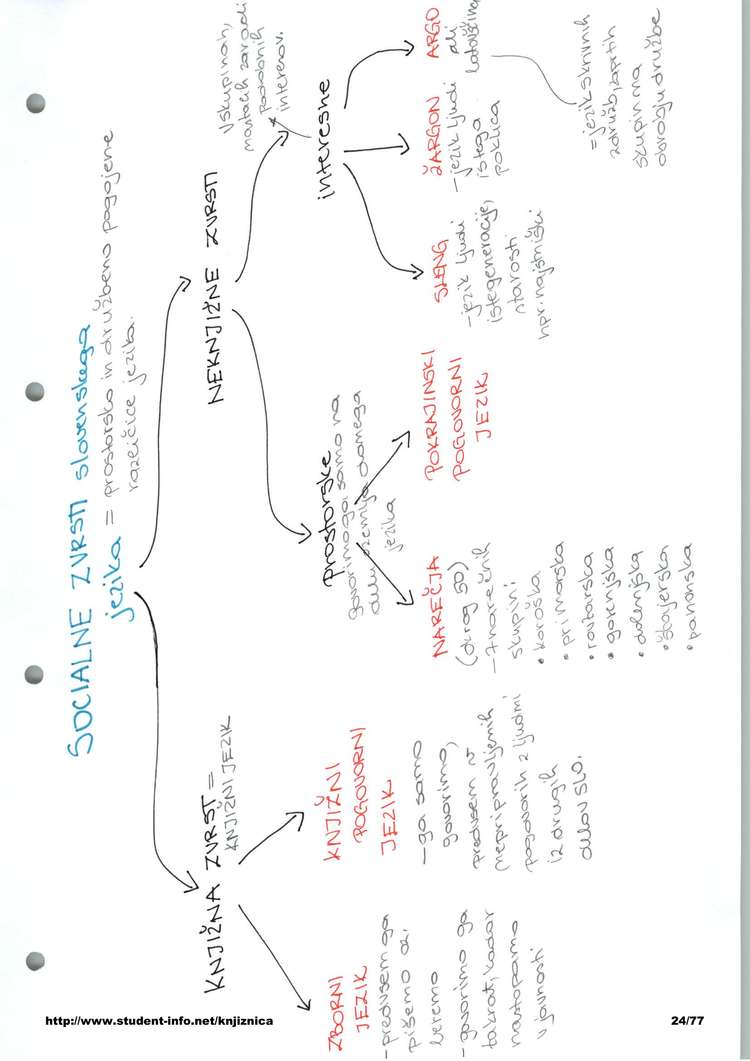 SOCIALNE ZVRSTI slovenskega
jezika = prostorsko in družbeno pogojene
različice jezika.
KNJIŽNA ZVRST =
KNJIŽNI JEZIK
ZBORNI
JEZIK
- predvsem ga
pišemo oz.
beremo
- govorimo ga
takrat, kadar
nastopamo
v javnosti
KNJIŽNI
POGOVORNI
JEZIK
- ga samo
govorimo,
predvsem v
nepripravljenih
pogovorih z ljudmi
iz drugih
delov SLO.
NEKNJIŽNE ZVRSTI
prostorske
govorimo ga samo na
delu ozemlja danega
jezika
NAREČJA
(okrog 50)
- 7 narečnih
skupin:
• koroška
• primorska
• rovtarska
• gorenjska
• dolenjska
• štajerska
• panonska
POKRAJINSKI
POGOVORNI
JEZIK
interesne
v skupinah,
nastalih zaradi
podobnih
interesov.
SLENG
- jezik ljudi
iste generacije,
starosti
npr. najstniški
ŽARGON
- jezik ljudi
istega
poklica
ARGO
ali
latovščina
= jezik skrivnih
združb, zaprtih
skupin na
obrobju družbe
http://www.student-info.net/knjiznica
24/77